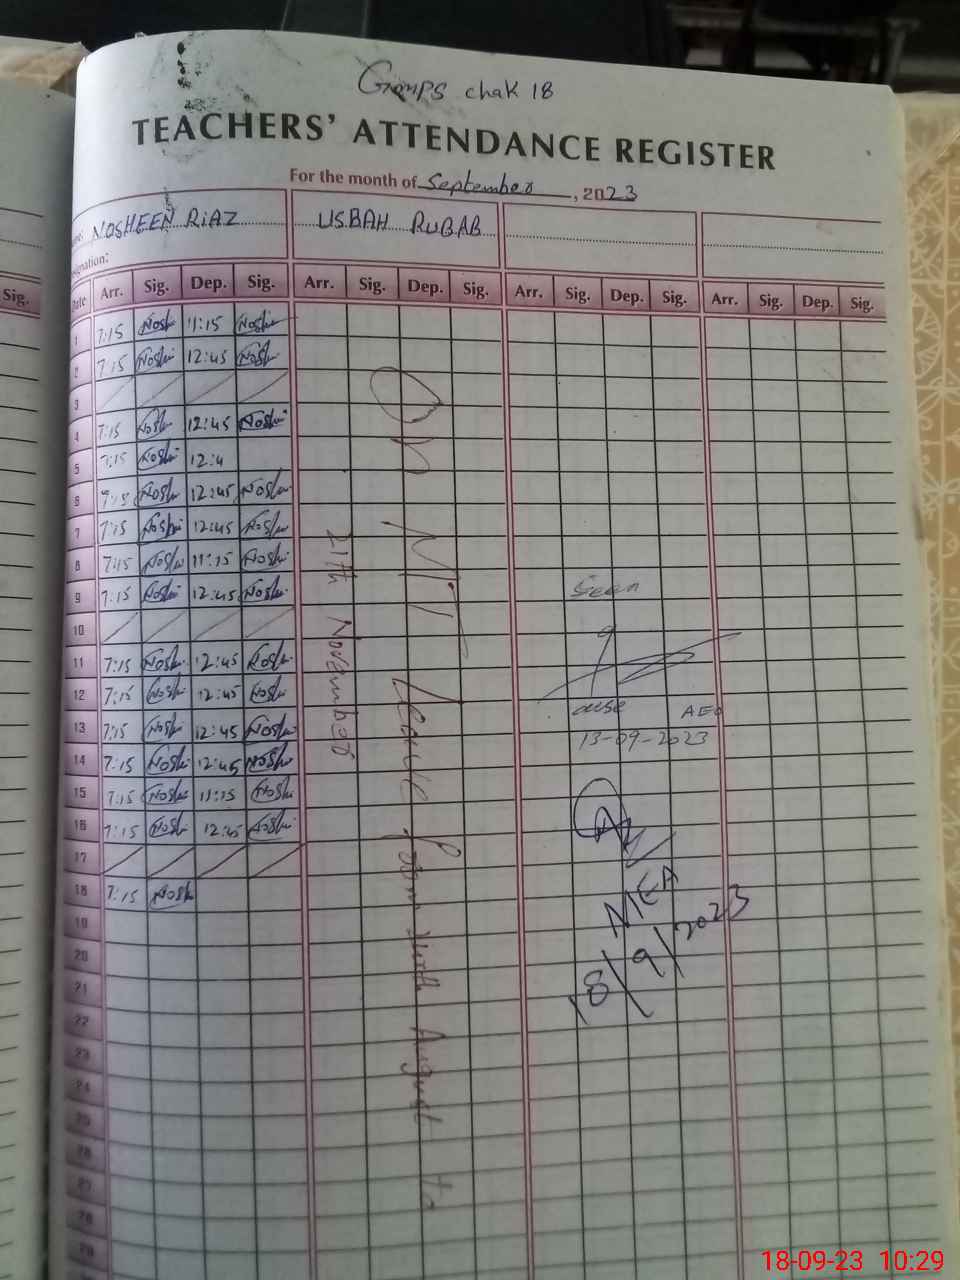 GGMPS chak 18
TEACHERS' ATTENDANCE REGISTER
For the month of September, 2023
NOSHEEN RIAZ USBAH RUBAB
Sig. Date Arr. Sig. Dep. Sig. Arr. Sig. Dep. Sig. Arr. Sig. Dep. Sig. Arr. Sig. Dep. Sig.
1 7:15 Nosh 11:15 Noshi
2 7:15 Noshi 12:45 Noshi
3
4 7:15 Noshi 12:45 Noshi
5 7:15 Noshi 12:4
6 7:15 Noshi 12:45 Noshi
7 7:15 Noshi 12:45 Noshi
8 7:15 Noshi 11:15 Noshi
9 7:15 Noshi 12:45 Noshi
10
11 7:15 Noshi 12:45 Noshi
12 7:15 Noshi 12:45 Noshi
13 7:15 Noshi 12:45 Noshi
14 7:15 Noshi 12:45 Noshi
15 7:15 Noshi 11:15 Noshi
16 7:15 Noshi 12:45 Noshi
17
18 7:15 Nosh
19
20
21
22
23
24
25
26
27
28
29
On Leave from August to
21th November
Seen
AEO
13-09-2023
MEA
18/9/2023
18-09-23 10:29